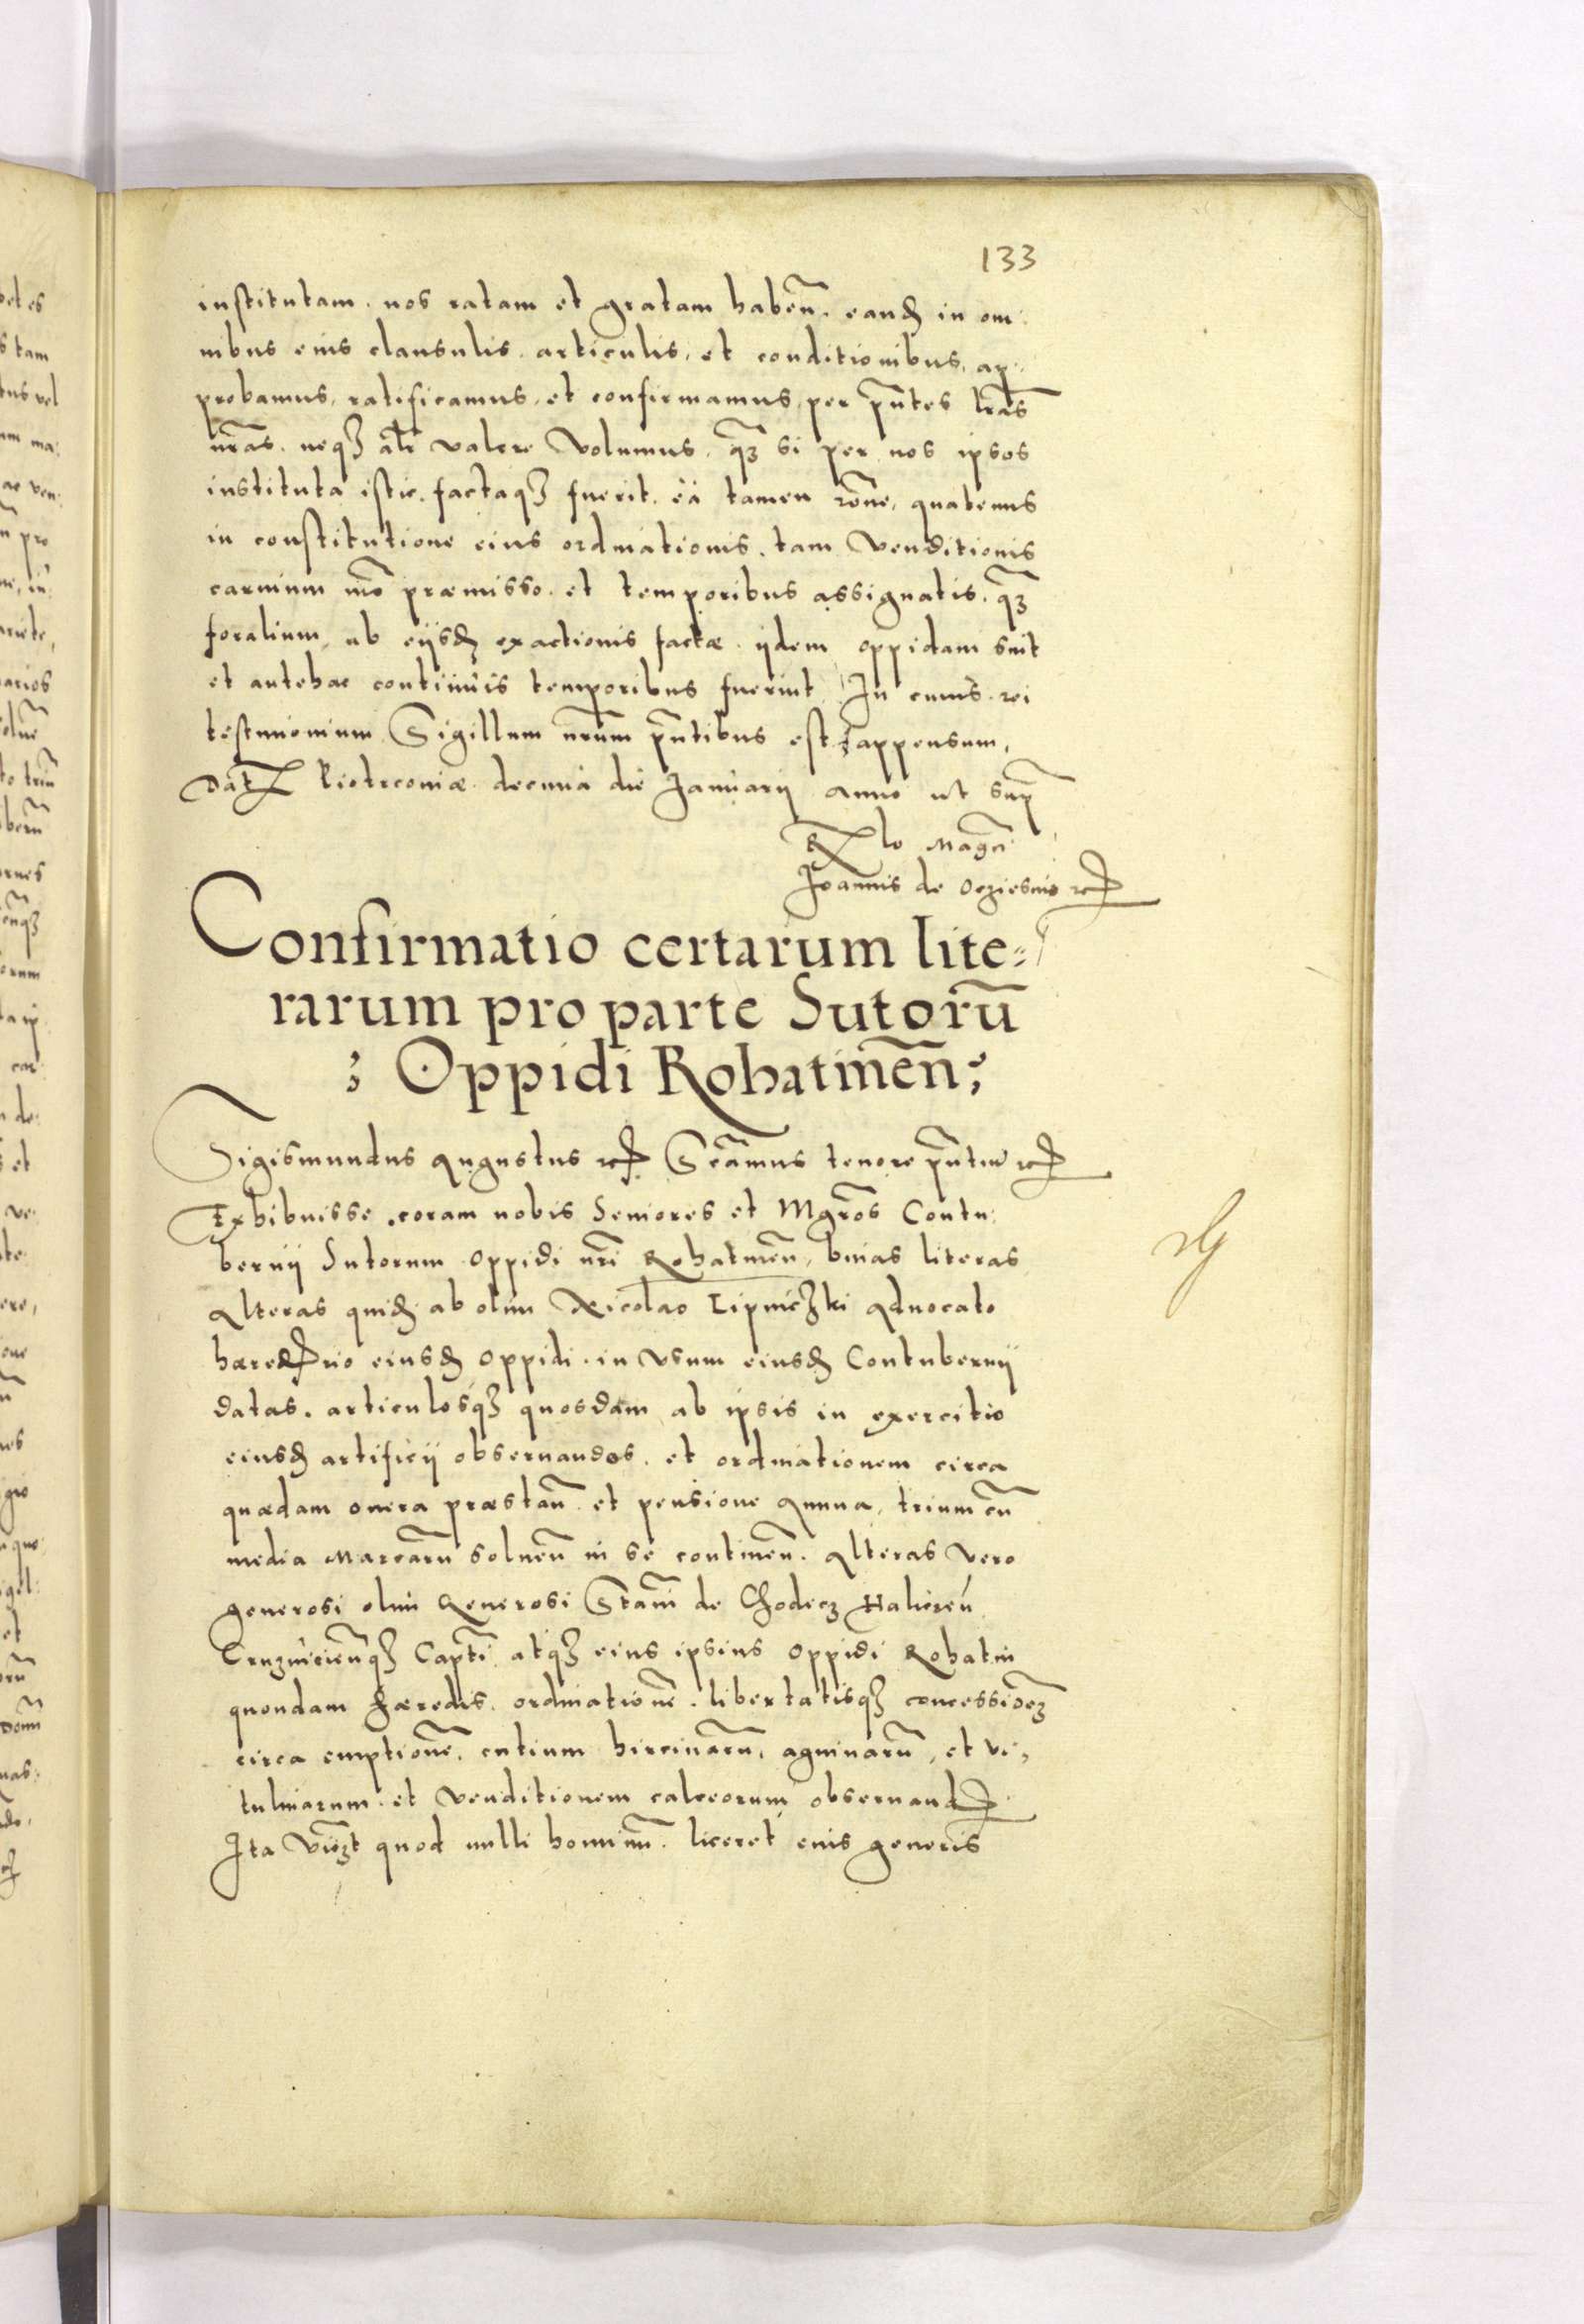 133
institutam. nos ratam et gratam habeñ. eandẽ in om:
nibus eius clausulis. articulis, et conditionibus, ap:
probamus, ratificamus, et confirmamus, per pñtes lras
nras. neqȝ alr valere volumus. qȝ si per nos ipsos
instituta istic. factaqȝ fuerit. eà tamen rõne, quatenus
in constitutione eius ordinationis. tam venditionis
carnium mõ præmisso. et temporibus assignatis. qȝ
foralium, ab eijsdẽ exactionis factæ. ijdem oppidani sint
et antehac continuis temporibus fuerint. In cuius. rei
testimonium Sigillum nrum pñtibus est appensum,
Dat Piotrconiæ decima die Januarij anno ut supr
Rlo Magci
Joannis de Ocziesnio rc
Confirmatio certarum lite=
rarum pro parte Sutorũ
Oppidi Rohatinẽn;
Sigismundus Augustus rc Scamus tenore pñtiũ rc
Exhibuisse. coram nobis Seniores et Mgros Contu:
bernij Sutorum oppidi nri Rohatineñ, binas literas
Alteras quidẽ ab olim Nicolao Lipniczki Aduocato
hæredrio eiusdẽ oppidi. in vsum eiusdẽ Contubernij
datas. articulosqȝ quosdam ab ipsis in exercitio
eiusdẽ artificij obseruandos. et ordinationem circa
quædam onera præstañ et pensione Annua, trium cũ
media Marcarũ solueñ in se contineñ. Alteras vero
generosi olim Generosi Stani de Chodecz Halicień
qȝ Capti atqȝ eius ipsius oppidi Rohatin
quondam hæredis. ordinatione. libertatisqȝ concessioeȝ
circa emptionẽ. cutium hircinarũ, agninarũ, et vi,
tulinarum. et venditionem calceorum obseruand
Ita vidȝt quod nulli hominũ. liceret eius generis